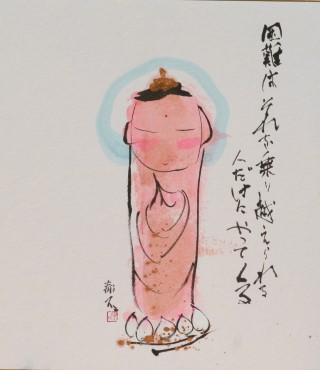 困難はそれを乗り越えられる
人だけにやってくる